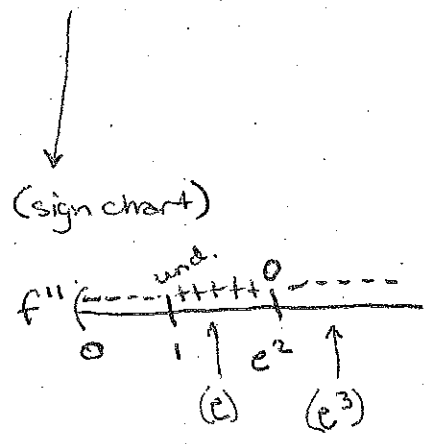 (sign chart)
und.
f'' (-----+++++ 0 ------
0 1 e² 
(e) (e³)